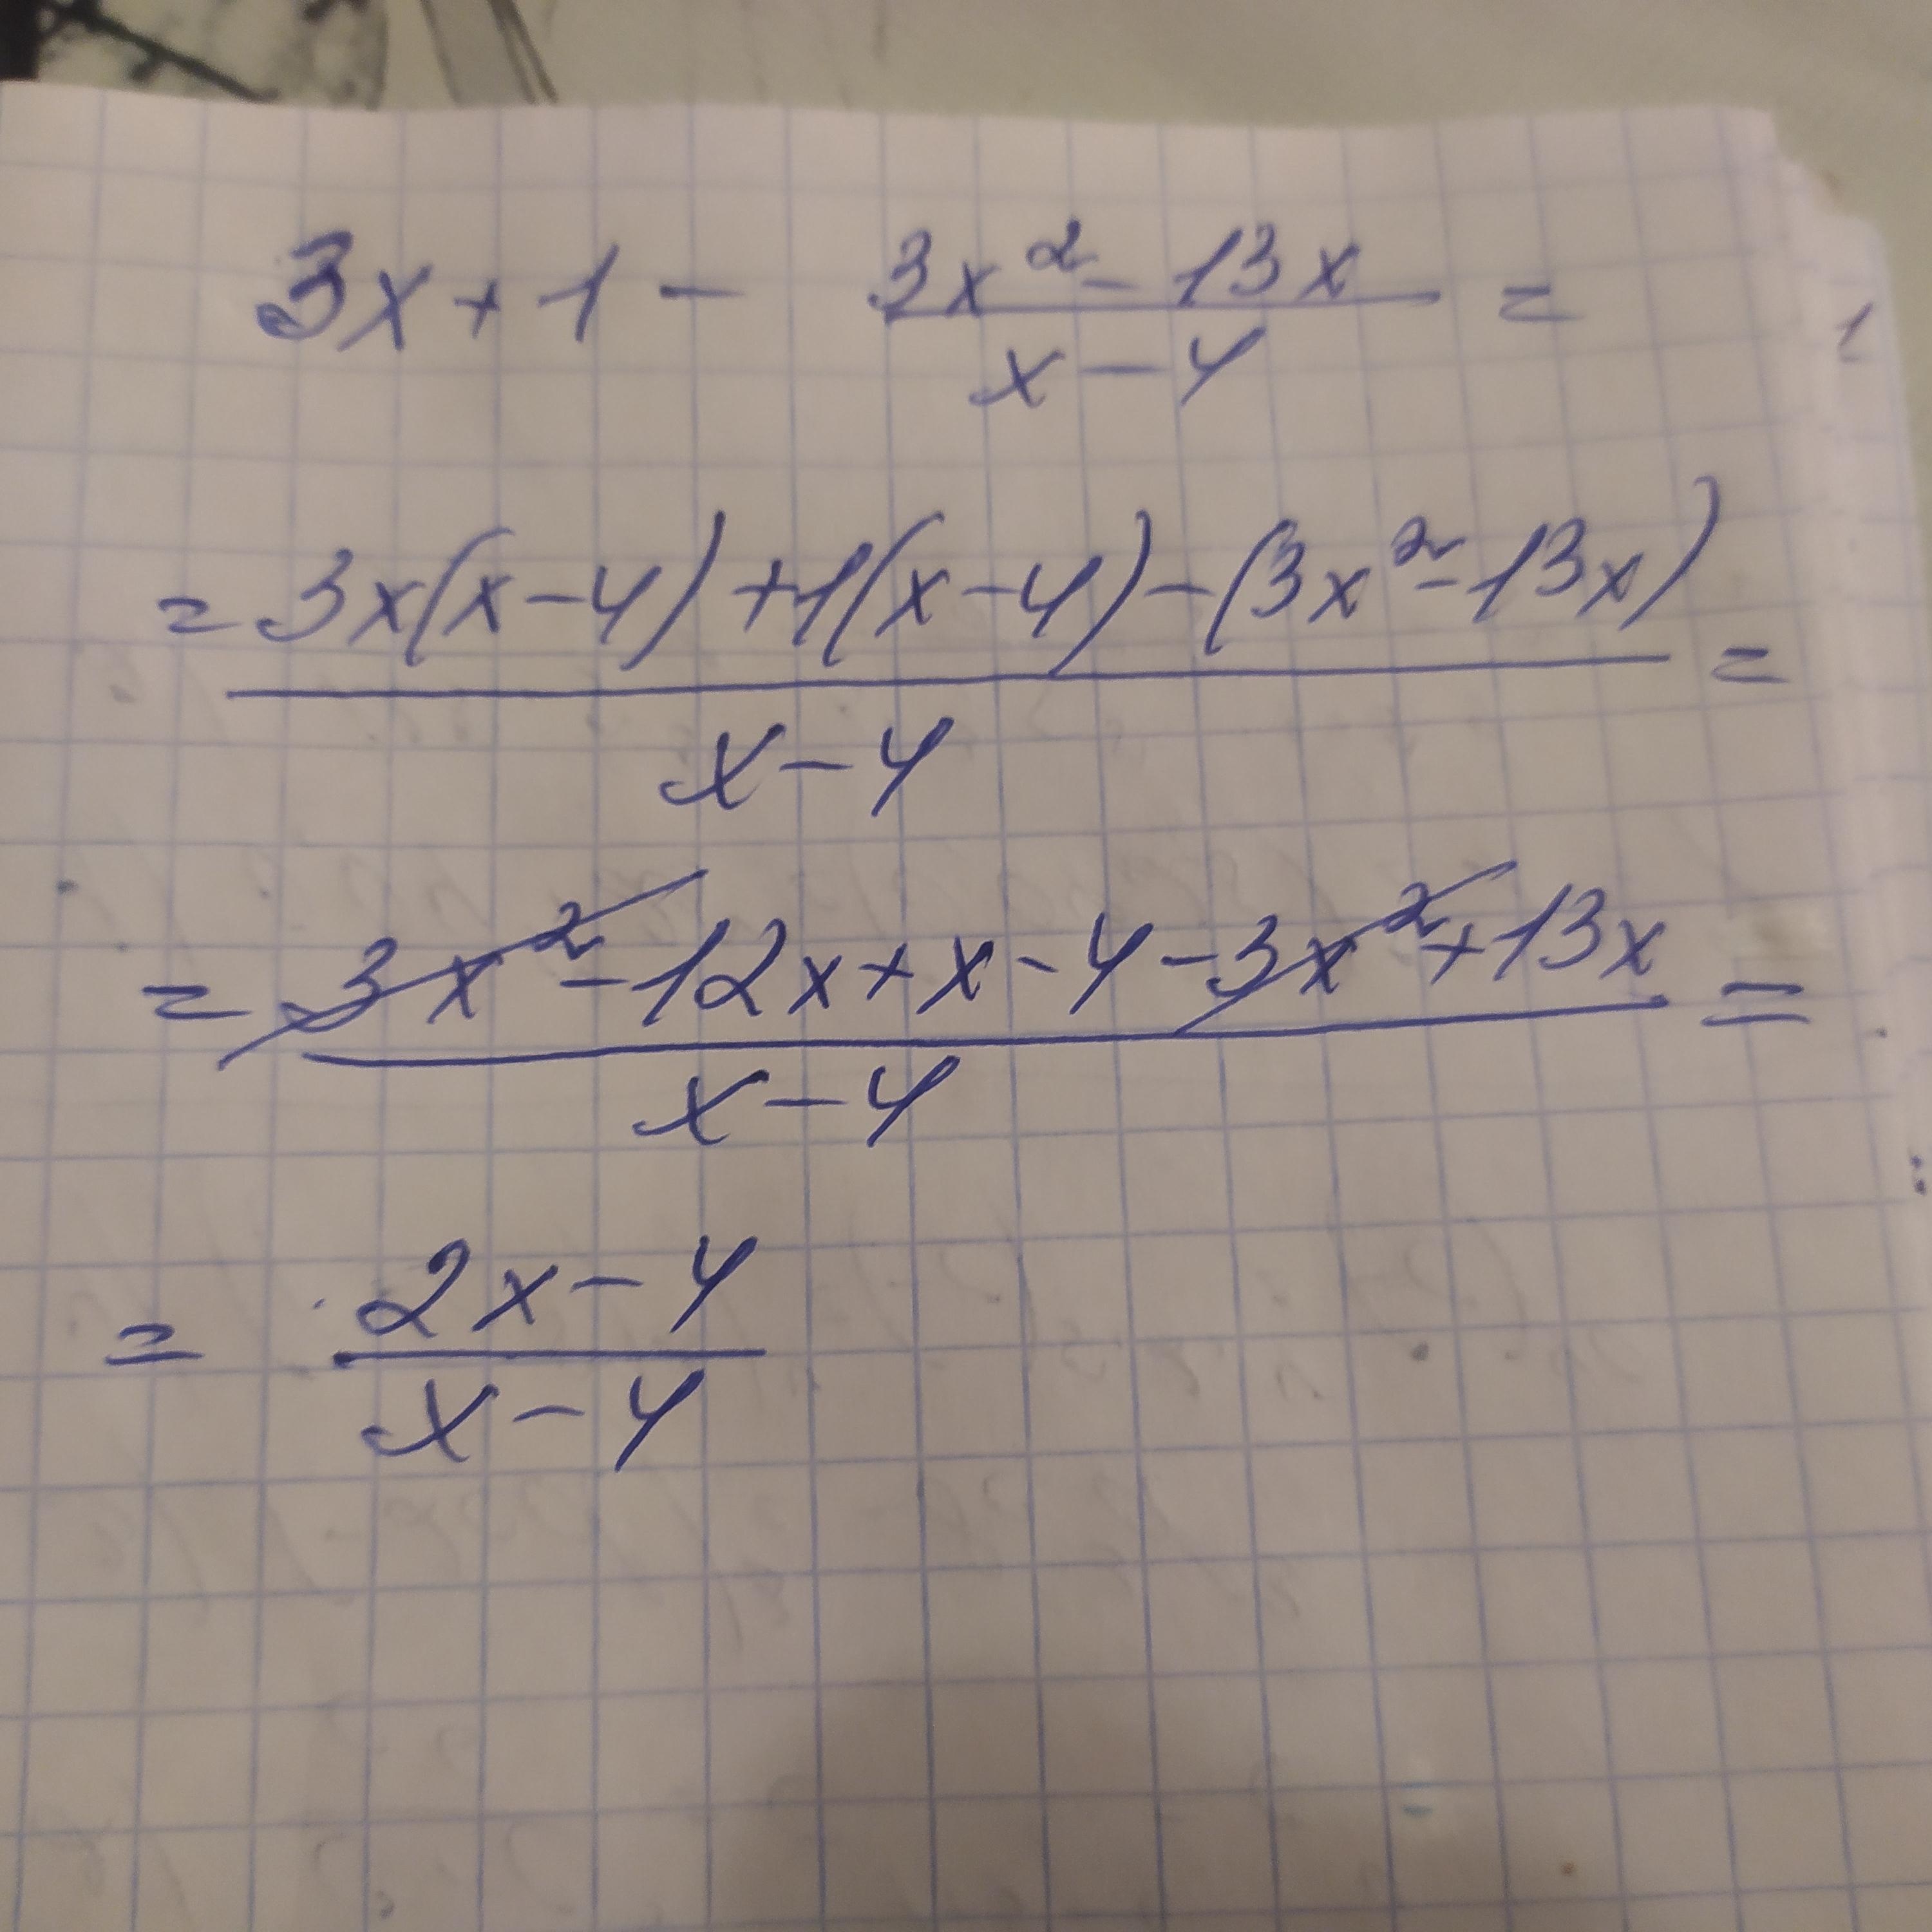 3x + 1 - (3x² - 13x)/(x - 4) =
= (3x(x - 4) + 1(x - 4) - (3x² - 13x))/(x - 4) =
= (3x² - 12x + x - 4 - 3x² + 13x)/(x - 4) =
= (2x - 4)/(x - 4)